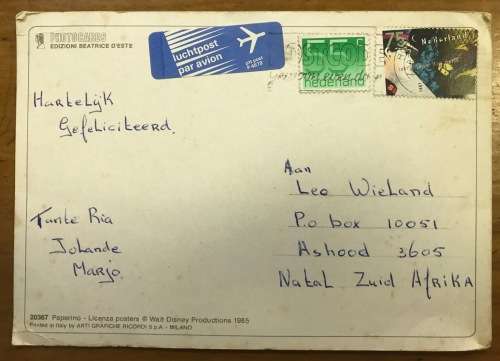 PHOTOCARDS
EDIZIONI BEATRICE D'ESTE
luchtpost
par avion
55c
nederland
75c
Nederland
Hartelijk
Gefeliciteerd.
Tante Ria
Jolande
Marjo.
Aan
Leo Wieland
P.o box 10051
Ashood 3605
Natal Zuid Afrika
20367 Paperino - Licenza posters © Walt Disney Productions 1985
Printed in Italy by ARTI GRAFICHE RICORDI S.p.A - MILANO